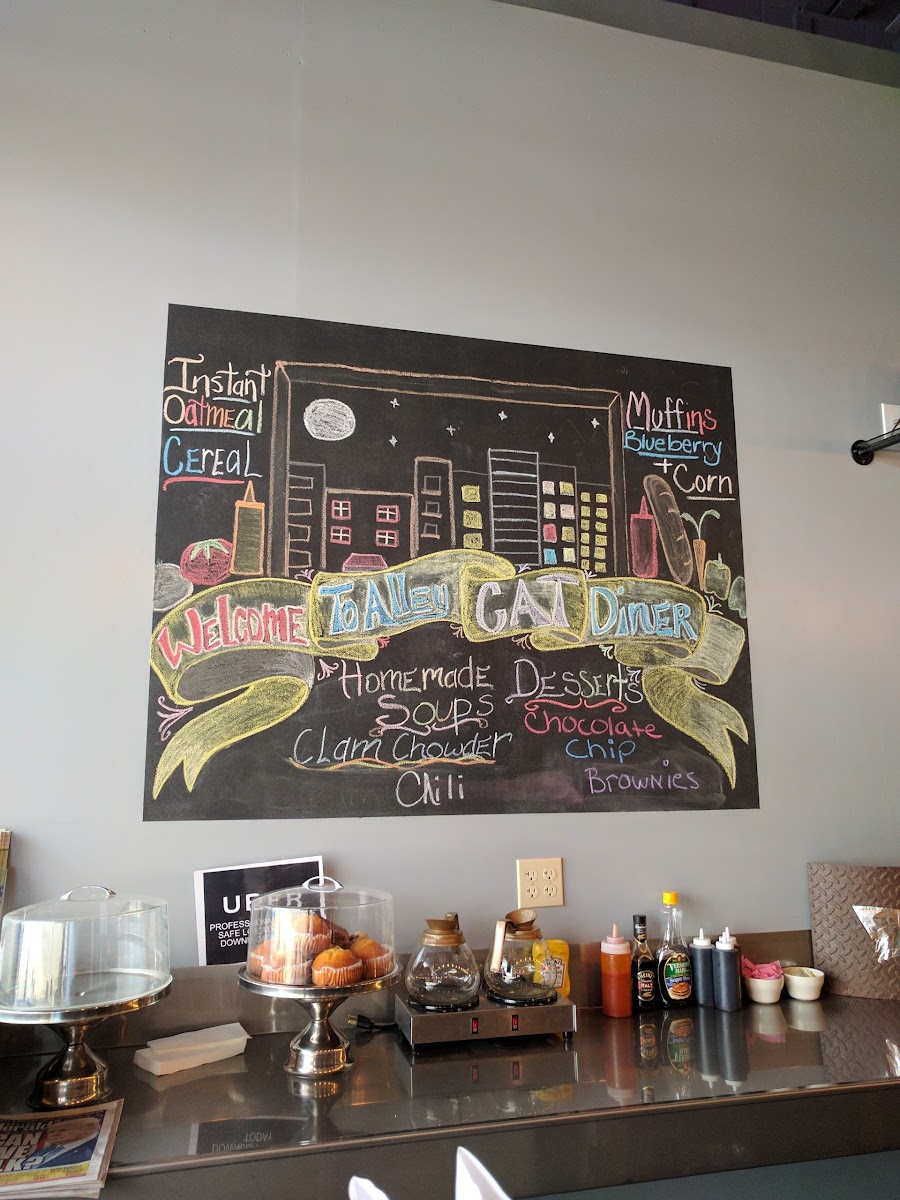 Instant
Oatmeal
Cereal
Muffins
Blueberry
+ Corn
Welcome To Alley CAT Diner
Homemade
Soups
Clam Chowder
Chili
Desserts
Chocolate
Chip
Brownies
UBER
PROFESS
SAFE
DOWN
VERMONT
MAID
MALT
CAN